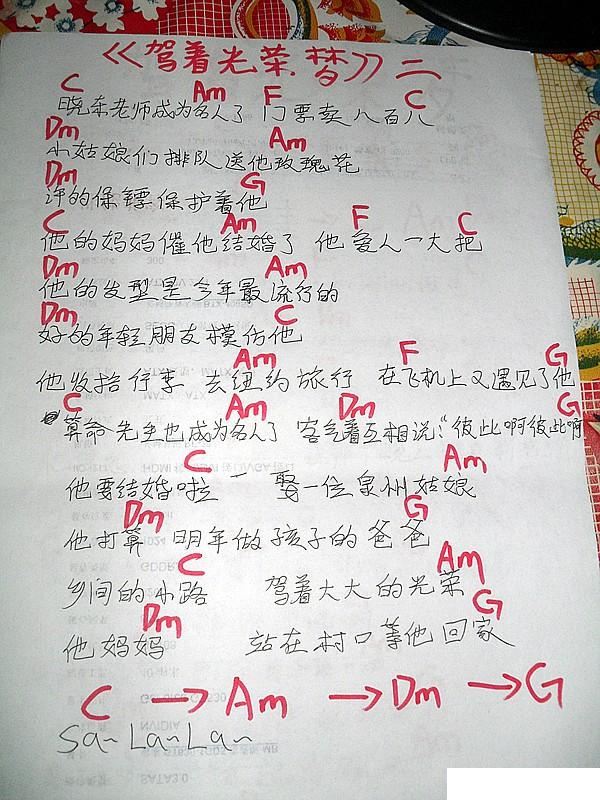 《驾着光荣.梦》二
C Am F C
晓东老师成为名人了 门票卖八百八
Dm Am
小姑娘们排队送他玫瑰花
Dm G
许的保镖保护着他
C Am F C
他的妈妈催他结婚了 他爱人一大把
Dm Am
他的发型是今年最流行的
Dm C
好的年轻朋友模仿他
Am F G
他收拾行李 去纽约旅行 在飞机上又遇见了他
C Am Dm G
算命先生也成为名人了 客气着互相说:"彼此啊彼此啊
C Am
他要结婚啦 一 娶一位泉州姑娘
Dm G
他打算 明年做孩子的爸爸
C Am
乡间的小路 驾着大大的光荣
Dm G
他妈妈 站在村口等他回家
C → Am → Dm → G
Sa~ La~ La~